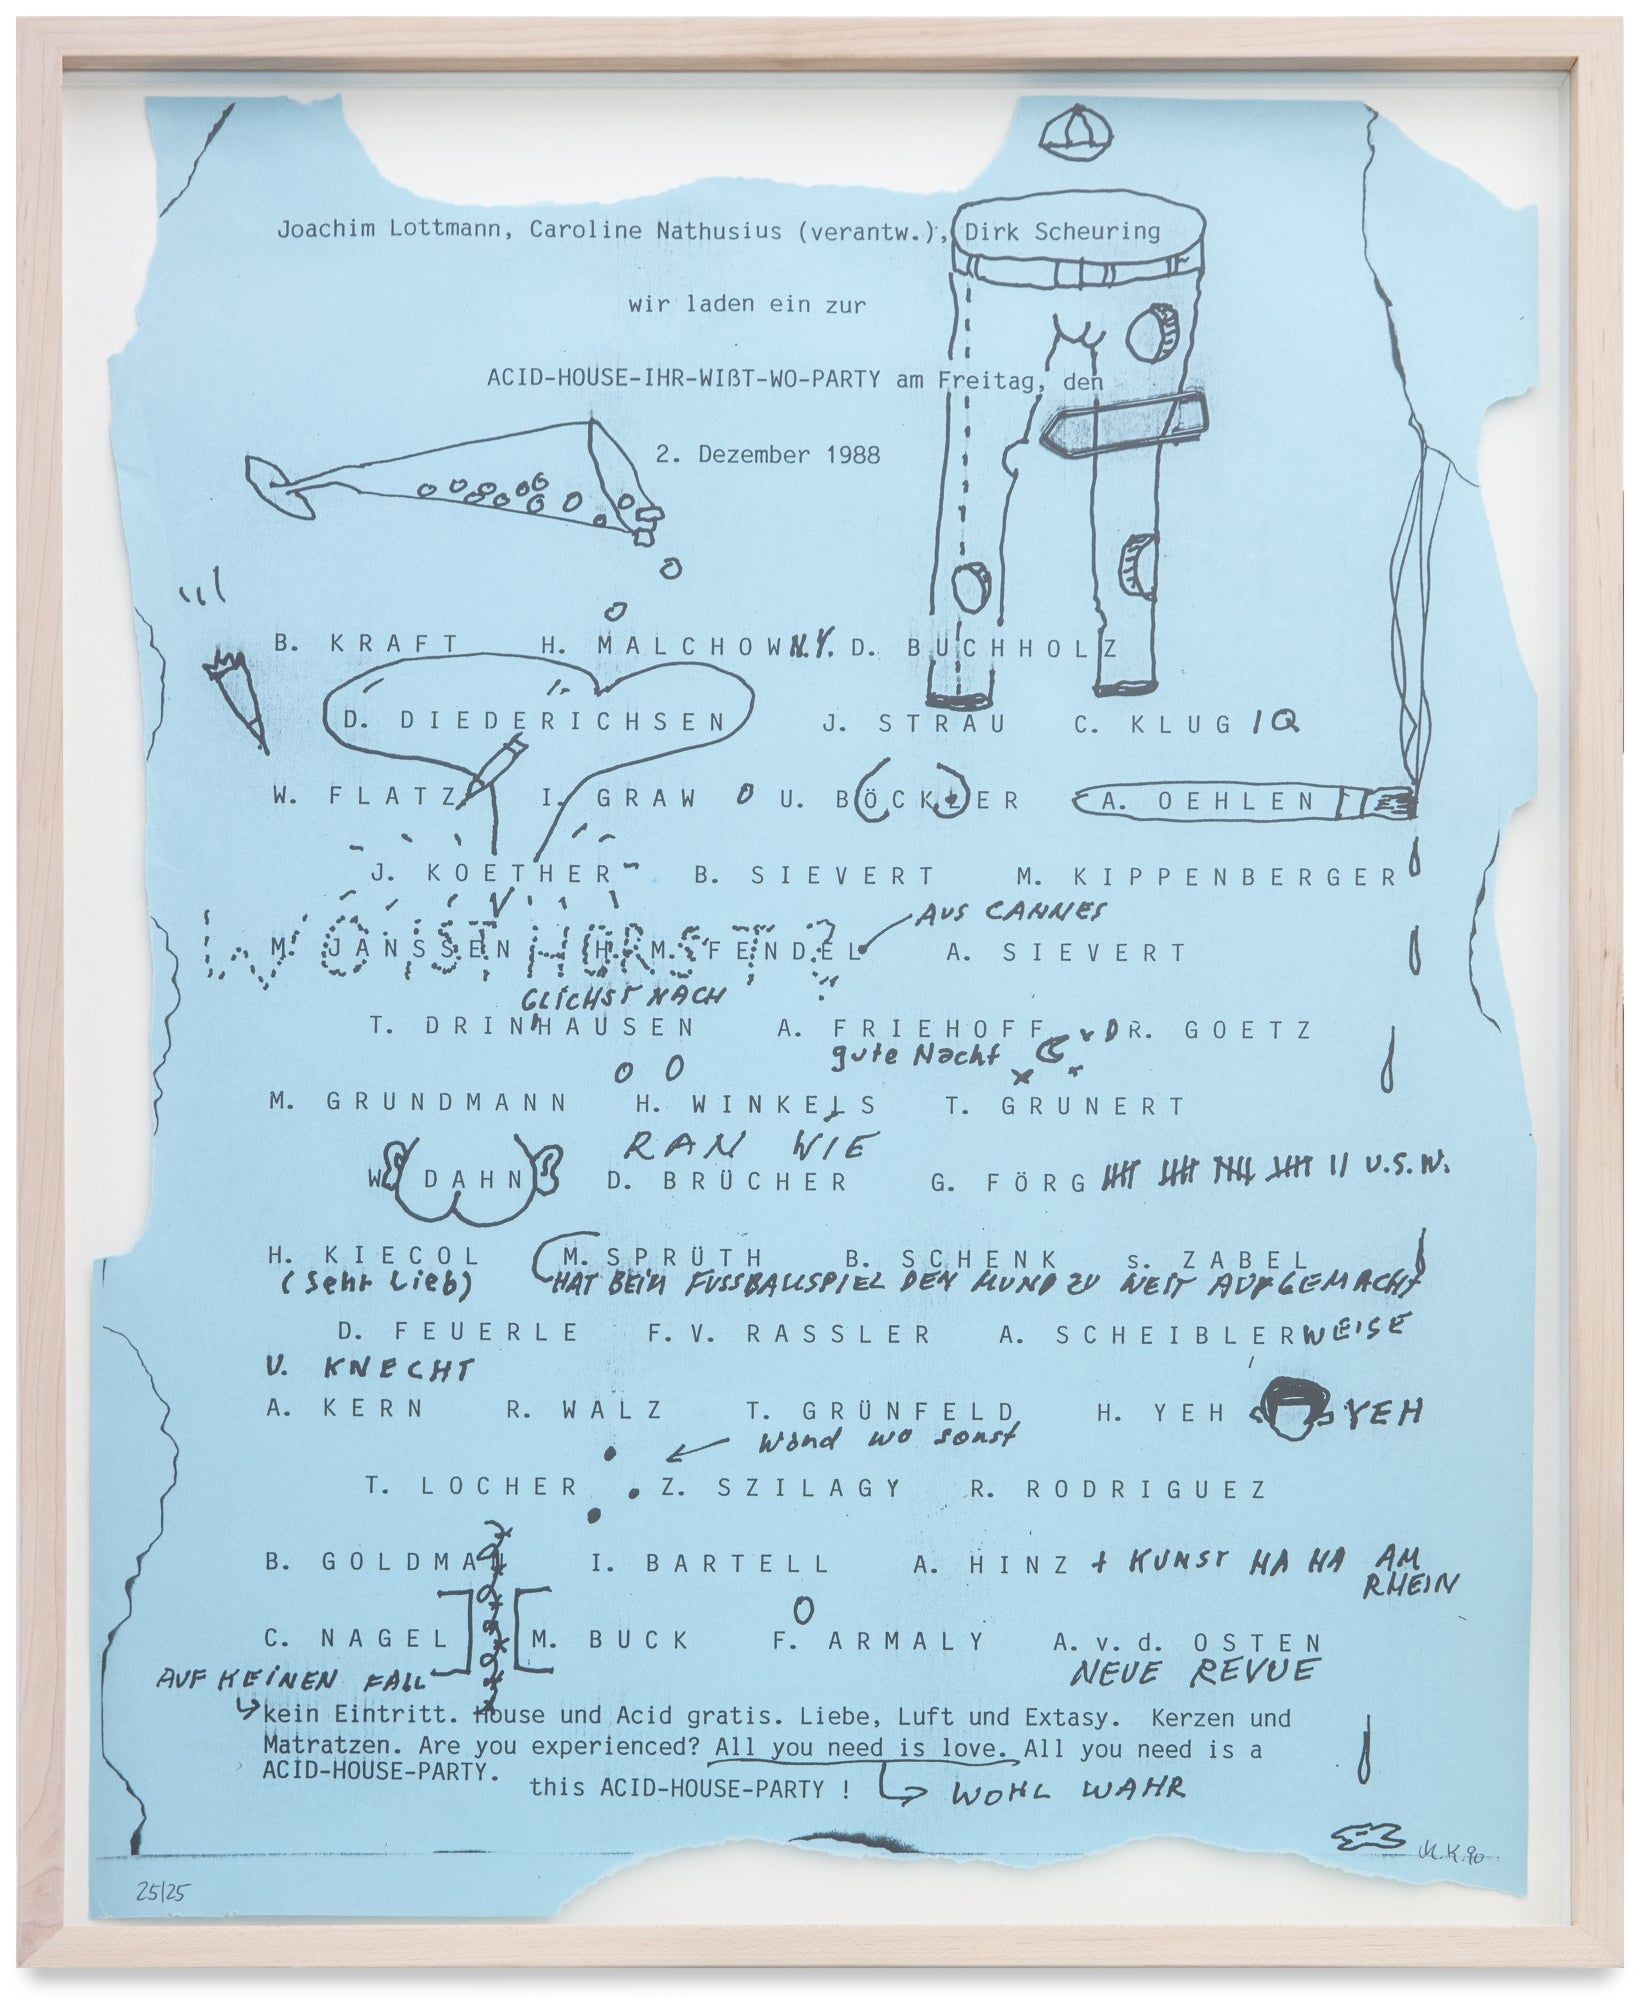 Joachim Lottmann, Caroline Nathusius (verantw.), Dirk Scheuring
wir laden ein zur
ACID-HOUSE-IHR-WIßT-WO-PARTY am Freitag, den
2. Dezember 1988
B. KRAFT H. MALCHOW N.Y. D. BUCHHOLZ
D. DIEDERICHSEN J. STRAU C. KLUG IQ
W. FLATZ I. GRAW U. BÖCKLER A. OEHLEN
J. KOETHER B. SIEVERT M. KIPPENBERGER
AUS CANNES
M. JANSSEN H.M. FENDEL A. SIEVERT
GLICHST NACH
T. DRINHAUSEN A. FRIEHOFF DR. GOETZ
gute Nacht
M. GRUNDMANN H. WINKELS T. GRUNERT
RAN WIE
W. DAHN D. BRÜCHER G. FÖRG U.S.W.
H. KIECOL M. SPRÜTH B. SCHENK S. ZABEL
(sehr Lieb) HAT BEIM FUSSBALLSPIEL DEN MUND ZU WEIT AUFGEMACHT
D. FEUERLE F.V. RASSLER A. SCHEIBLER WEISE
U. KNECHT
A. KERN R. WALZ T. GRÜNFELD H. YEH YEH
Wand wo sonst
T. LOCHER Z. SZILAGY R. RODRIGUEZ
B. GOLDMAN I. BARTELL A. HINZ + KUNST HA HA AM
RHEIN
C. NAGEL M. BUCK F. ARMALY A. v. d. OSTEN
AUF KEINEN FALL NEUE REVUE
kein Eintritt. House und Acid gratis. Liebe, Luft und Extasy. Kerzen und
Matratzen. Are you experienced? All you need is love. All you need is a
ACID-HOUSE-PARTY. this ACID-HOUSE-PARTY ! WOHL WAHR
M.K. 90
25/25